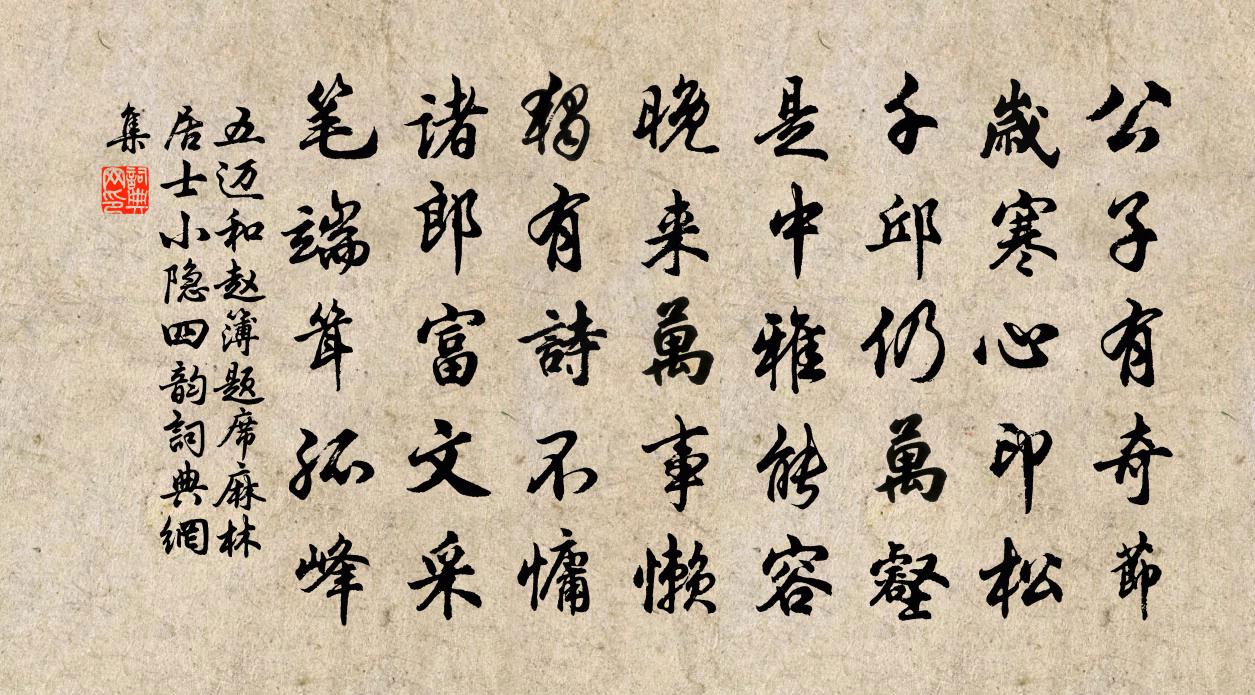 公子有奇節
歲寒心印松
千邱仍萬壑
是中雅能容
晚来萬事懶
獨有詩不慵
诸郎富文采
笔端耸孤峰
五迈和赵簿题席麻林
居士小隐四韵詞典網
集
詞典
网印